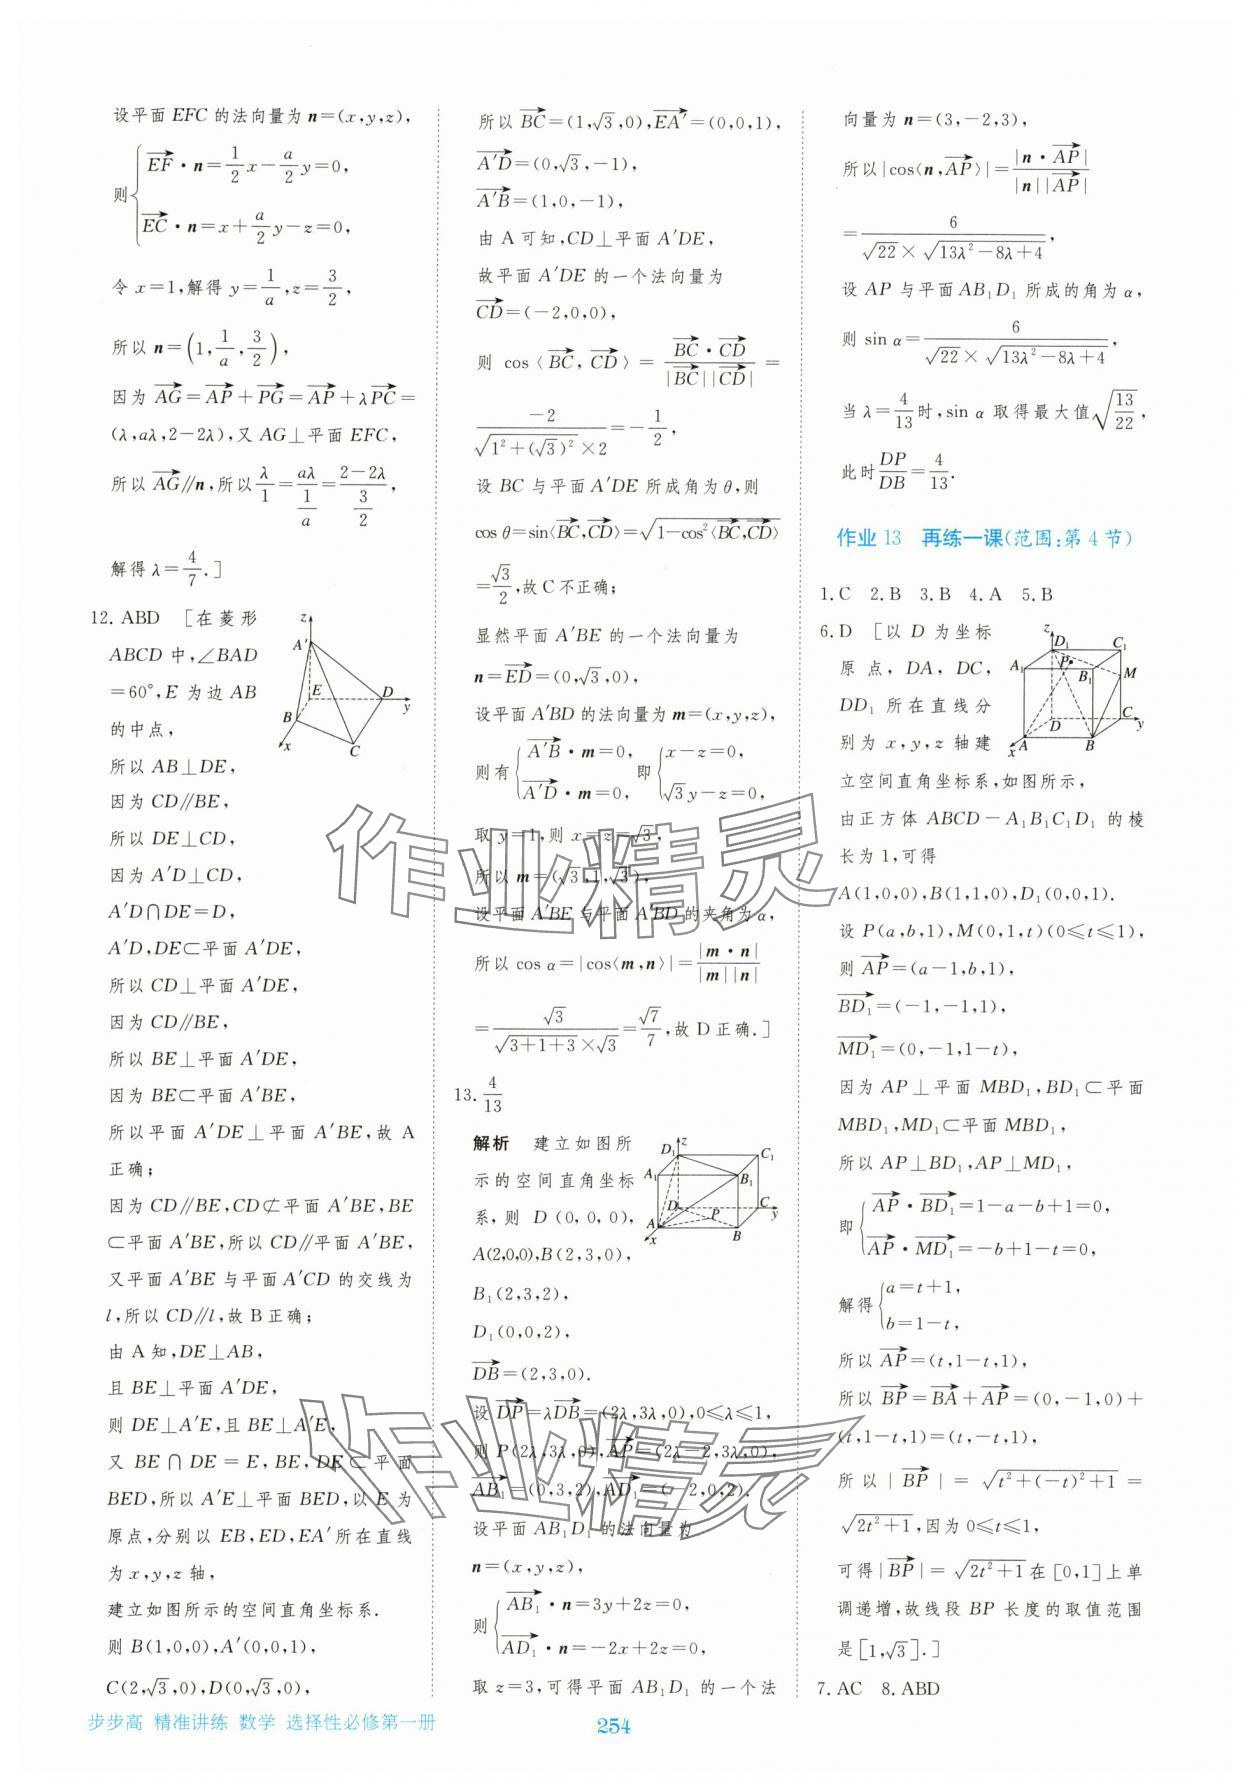 设平面 EFC 的法向量为 n=(x,y,z),
则{EF·n=1/2x-a/2y=0,
EC·n=x+a/2y-z=0,
令 x=1,解得 y=1/a,z=3/2,
所以 n=(1,1/a,3/2),
因为 AG=AP+PG=AP+λPC=
(λ,aλ,2-2λ),又 AG⊥平面 EFC,
所以 AG∥n,所以 λ/1=aλ/(1/a)=(2-2λ)/(3/2),
解得 λ=4/7.]
12. ABD [在菱形
ABCD 中,∠BAD
=60°,E 为边 AB
的中点,
所以 AB⊥DE,
因为 CD∥BE,
所以 DE⊥CD,
因为 A′D⊥CD,
A′D∩DE=D,
A′D,DE⊂平面 A′DE,
所以 CD⊥平面 A′DE,
因为 CD∥BE,
所以 BE⊥平面 A′DE,
因为 BE⊂平面 A′BE,
所以平面 A′DE⊥平面 A′BE,故 A
正确;
因为 CD∥BE,CD⊄平面 A′BE,BE
⊂平面 A′BE,所以 CD∥平面 A′BE,
又平面 A′BE 与平面 A′CD 的交线为
l,所以 CD∥l,故 B 正确;
由 A 知,DE⊥AB,
且 BE⊥平面 A′DE,
则 DE⊥A′E,且 BE⊥A′E,
又 BE∩DE=E,BE,DE⊂平面
BED,所以 A′E⊥平面 BED,以 E 为
原点,分别以 EB,ED,EA′所在直线
为 x,y,z 轴,
建立如图所示的空间直角坐标系.
则 B(1,0,0),A′(0,0,1),
C(2,√3,0),D(0,√3,0),
z
A′
E
D
y
B
x
C
所以 BC=(1,√3,0),EA′=(0,0,1),
A′D=(0,√3,-1),
A′B=(1,0,-1),
由 A 可知,CD⊥平面 A′DE,
故平面 A′DE 的一个法向量为
CD=(-2,0,0),
则 cos〈BC,CD〉=BC·CD/|BC||CD|=
-2/(√(1²+(√3)²)×2)=-1/2,
设 BC 与平面 A′DE 所成角为 θ,则
cos θ=sin〈BC,CD〉=√(1-cos²〈BC,CD〉)
=√3/2,故 C 不正确;
显然平面 A′BE 的一个法向量为
n=ED=(0,√3,0),
设平面 A′BD 的法向量为 m=(x,y,z),
则有{A′B·m=0, A′D·m=0, 即{x-z=0, √3y-z=0,
取 y=1,则 x=z=√3,
所以 m=(√3,1,√3),
设平面 A′BE 与平面 A′BD 的夹角为 α,
所以 cos α=|cos〈m,n〉|=|m·n|/|m||n|
=√3/(√(3+1+3)×√3)=√7/7,故 D 正确.]
13. 4/13
解析 建立如图所
示的空间直角坐标
系,则 D(0,0,0),
A(2,0,0),B(2,3,0),
B₁(2,3,2),
D₁(0,0,2),
DB=(2,3,0).
设 DP=λDB=(2λ,3λ,0),0≤λ≤1,
则 P(2λ,3λ,0),AP=(2λ-2,3λ,0),
AB₁=(0,3,2),AD₁=(-2,0,2).
设平面 AB₁D₁ 的法向量为
n=(x,y,z),
则{AB₁·n=3y+2z=0,
AD₁·n=-2x+2z=0,
取 z=3,可得平面 AB₁D₁ 的一个法
D₁
z
C₁
A₁
B₁
D
C
P
y
A
B
x
向量为 n=(3,-2,3),
所以|cos〈n,AP〉|=|n·AP|/|n||AP|
=6/(√22×√(13λ²-8λ+4)),
设 AP 与平面 AB₁D₁ 所成的角为 α,
则 sin α=6/(√22×√(13λ²-8λ+4)),
当 λ=4/13时,sin α 取得最大值√(13/22),
此时DP/DB=4/13.
作业 13 再练一课(范围:第 4 节)
1. C 2. B 3. B 4. A 5. B
6. D [以 D 为坐标
原点,DA,DC,
DD₁ 所在直线分
别为 x,y,z 轴建
立空间直角坐标系,如图所示,
由正方体 ABCD-A₁B₁C₁D₁ 的棱
长为 1,可得
A(1,0,0),B(1,1,0),D₁(0,0,1).
设 P(a,b,1),M(0,1,t)(0≤t≤1),
则 AP=(a-1,b,1),
BD₁=(-1,-1,1),
MD₁=(0,-1,1-t),
因为 AP⊥平面 MBD₁,BD₁⊂平面
MBD₁,MD₁⊂平面 MBD₁,
所以 AP⊥BD₁,AP⊥MD₁,
即{AP·BD₁=1-a-b+1=0,
AP·MD₁=-b+1-t=0,
解得{a=t+1,
b=1-t,
所以 AP=(t,1-t,1),
所以 BP=BA+AP=(0,-1,0)+
(t,1-t,1)=(t,-t,1),
所以|BP|=√(t²+(-t)²+1)=
√(2t²+1),因为 0≤t≤1,
可得|BP|=√(2t²+1)在[0,1]上单
调递增,故线段 BP 长度的取值范围
是[1,√3].]
7. AC 8. ABD
z
D₁
C₁
A₁
P
B₁
M
D
C
y
A
B
x
作业精灵
作业精灵
步步高 精准讲练 数学 选择性必修第一册
254